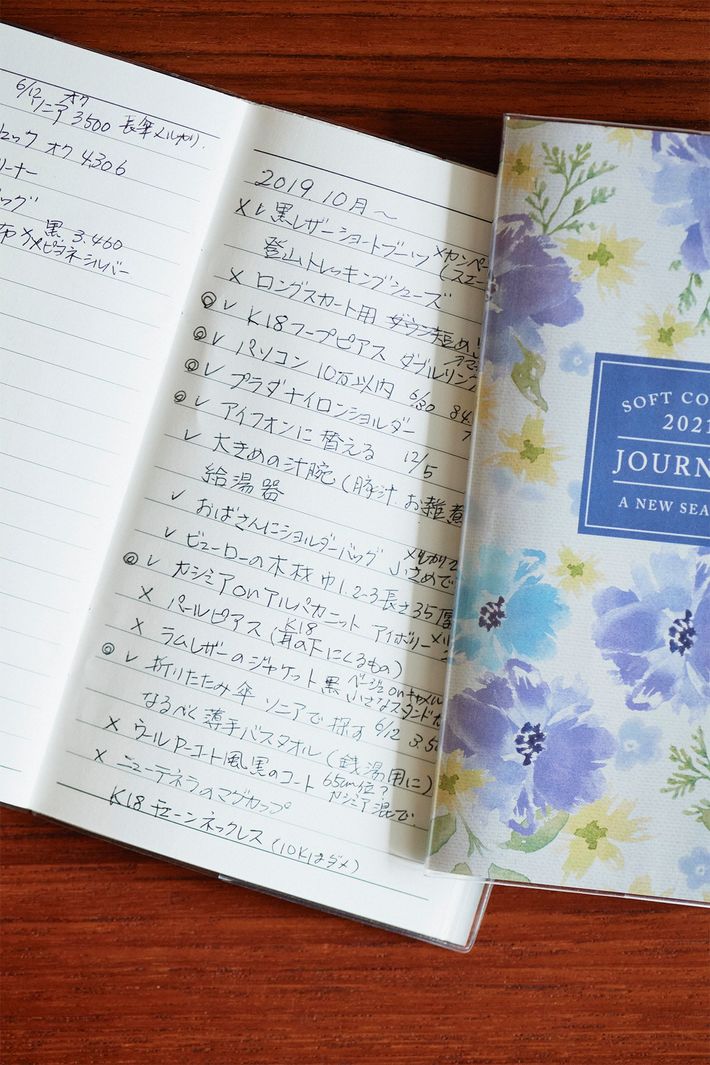 6/12 オク
ソニア 3500 長傘メルカリ.
セック オク 4306
リーナー
バッグ
黒 3.460
布 ヌメピヨネシルバー
2019 10月〜
× レ 黒レザーショートブーツ ×カンペー
(スエー
登山トレッキングシューズ
× ロングスカート用 ダウン短め
◎ レ K18フープピアス ダブルリング
◎ レ パソコン 10万以内 6/30 84.
◎ レ プラダナイロンショルダー
◎ レ アイフォンに替える 12/5
レ 大きめの汁腕(豚汁 お雑煮
給湯器
レ おばさんにショルダーバッグ 小さめで
レ ビューローの木材 巾1.2-3 長さ35 厚
◎ レ カシミア on アルパカニット アイボリー
× パールピアス K18 (耳の下にくるもの)
× ラムレザーのジャケット 黒 ベージュ on キャメル
小さなスタンドカ
◎ レ 折りたたみ傘 ソニアで探す 6/12 3.50
なるべく薄手バスタオル(銭湯用に)
× ウールPコート風黒のコート 65cm位?
カシミア混で
× ニューテネラのマグカップ
K18 チェーンネックレス(10Kはダメ)
SOFT CO
2021
JOURN
A NEW SEA